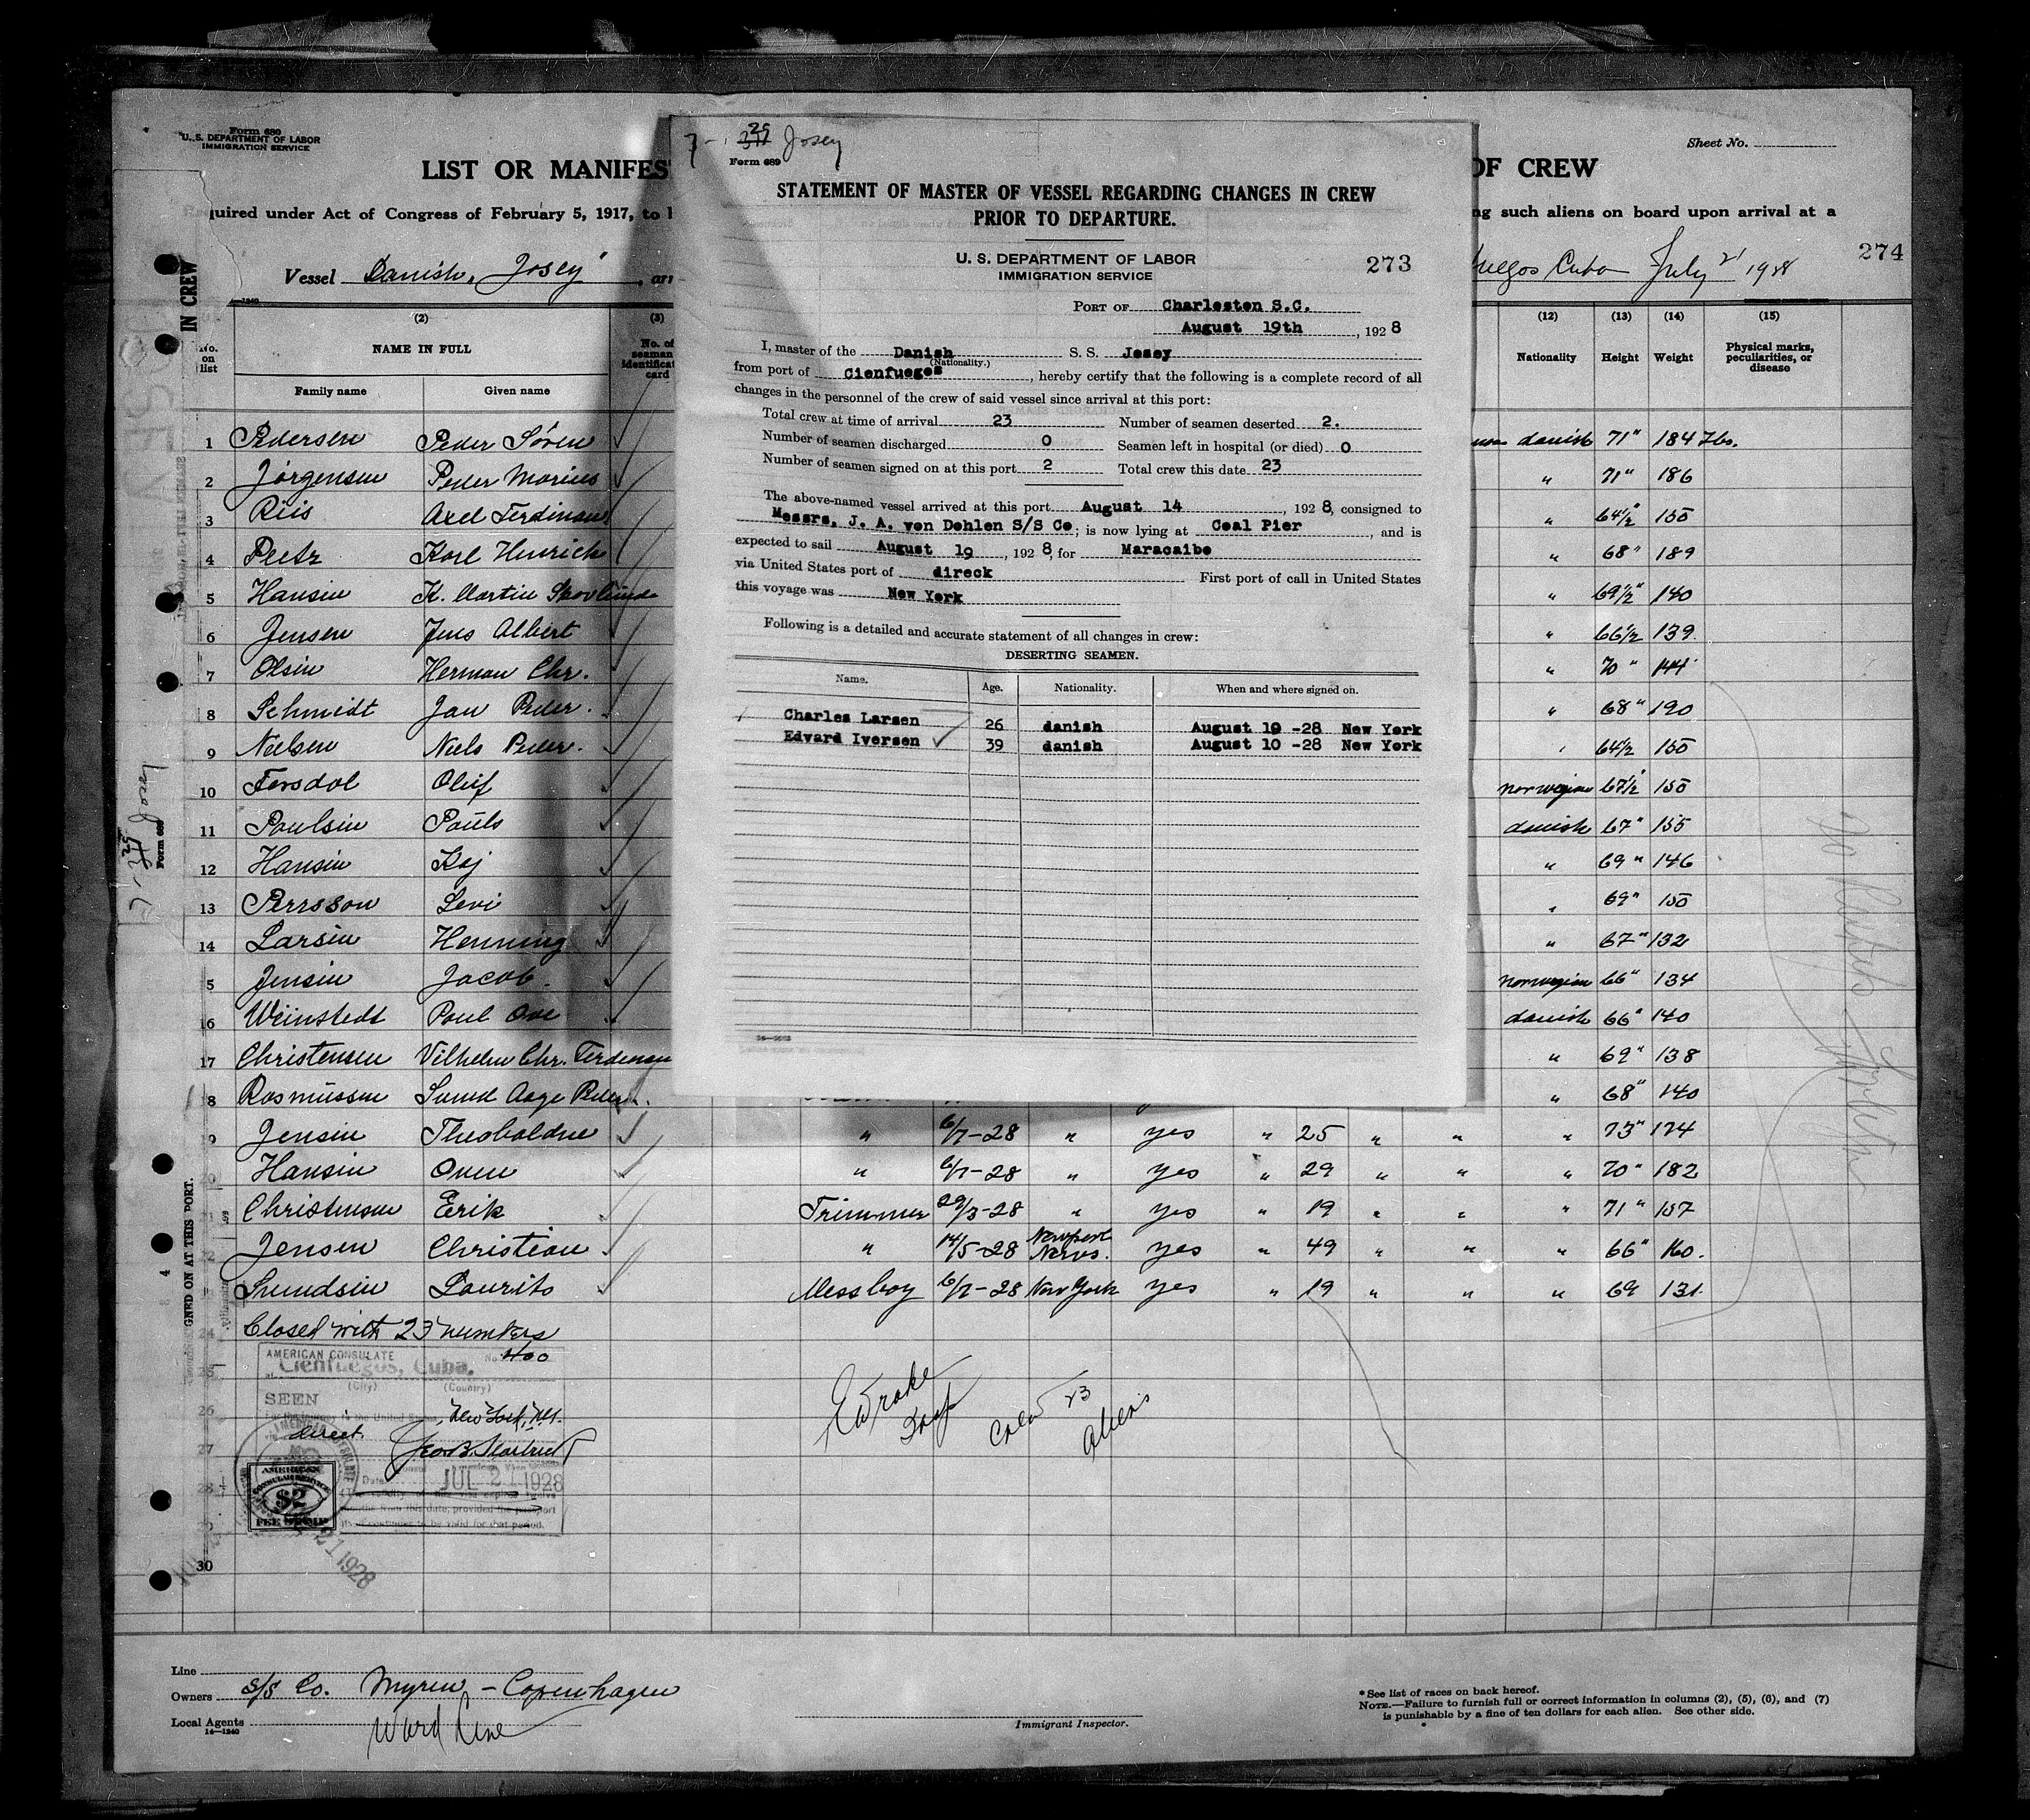 Form 680
U. S. DEPARTMENT OF LABOR
IMMIGRATION SERVICE
Sheet No.
LIST OR MANIFES
OF CREW
quired under Act of Congress of February 5, 1917, to
ng such aliens on board upon arrival at a
Vessel Danish "Josey" , arr
uegos Cuba July 21 1928
274
No. on list
(2)
NAME IN FULL
Family name Given name
(3)
No. of seaman's identification card
(12) Nationality
(13) Height
(14) Weight
(15) Physical marks, peculiarities, or disease
1 Pedersen Peder Sören danish 71" 184 lbs.
2 Jörgensen Peder Marius " 71" 186
3 Riis Axel Ferdinand " 64½" 150
4 Peetz Karl Hinrich " 68" 189
5 Hansin K. Martin Skovlunde " 69½" 140
6 Jensen Jens Albert " 66½ 139
7 Olsin Herman Chr. " 70" 144
8 Schmidt Jan Peder. " 68" 190
9 Nielsen Niels Peder. " 64½ 150
10 Forsdal Oluf norwegian 67½" 150
11 Poulsin Pouls danish 67" 155
12 Hansin Kaj " 69" 146
13 Perrsson Levi " 69" 150
14 Larsin Henning " 67" 132
5 Jensin Jacob. norwegian 66" 134
16 Weinstedt Poul Ove danish 66" 140
17 Christensen Vilhelm Chr. Ferdinan " 69" 138
8 Rasmüssen Svend Aage Peder. " 68" 140
9 Jensin Theobaldne " 6/7-28 " yes " 25 " " " 73" 174
20 Hansin Oven " 6/7-28 " yes " 29 " " " 70" 182
21 Christensen Erik Trimmer 29/3-28 " yes " 19 " " " 71" 157
22 Jensen Christian " 14/5-28 Newport News. yes " 49 " " " 66" 160.
Svendsin Laurits Messboy 6/7-28 New York yes " 19 " " " 69 131.
24 Closed with 23 numbers
25
26
27
28
29
30
AMERICAN CONSULATE No. 400
at Cienfuegos, Cuba.
(City) (Country)
SEEN
For the journey to the United States
New York, N.Y.
direct.
Date JUL 21 1928
months from this date, provided the passport
continues to be valid for that period.
AMERICAN
CONSULAR SERVICE
$2
FEE STAMP
21 1928
Crew 23
Aliens
Line
Owners S/S Co. Myren - Copenhagen
Local Agents Ward Line
14—1240
Immigrant Inspector.
* See list of races on back hereof.
NOTE.—Failure to furnish full or correct information in columns (2), (5), (6), and (7)
is punishable by a fine of ten dollars for each alien. See other side.
IN CREW
GNED ON AT THIS PORT.
Josey
Form 689
7- 25 Josey
Form 689
STATEMENT OF MASTER OF VESSEL REGARDING CHANGES IN CREW
PRIOR TO DEPARTURE.
U. S. DEPARTMENT OF LABOR
IMMIGRATION SERVICE
273
PORT OF Charleston S.C.
August 19th , 1928
I, master of the Danish S. S. Josey
(Nationality.)
from port of Cienfuegos , hereby certify that the following is a complete record of all
changes in the personnel of the crew of said vessel since arrival at this port:
Total crew at time of arrival 23 Number of seamen deserted 2.
Number of seamen discharged 0 Seamen left in hospital (or died) 0
Number of seamen signed on at this port 2 Total crew this date 23
The above-named vessel arrived at this port August 14 , 1928, consigned to
Messrs, J. A. von Dohlen S/S Co; is now lying at Coal Pier , and is
expected to sail August 19 , 1928, for Maracaibo
via United States port of direck First port of call in United States
this voyage was New York
Following is a detailed and accurate statement of all changes in crew:
DESERTING SEAMEN.
Name. Age. Nationality. When and where signed on.
Charles Larsen 26 danish August 10 -28 New York
Edvard Iversen 39 danish August 10 -28 New York